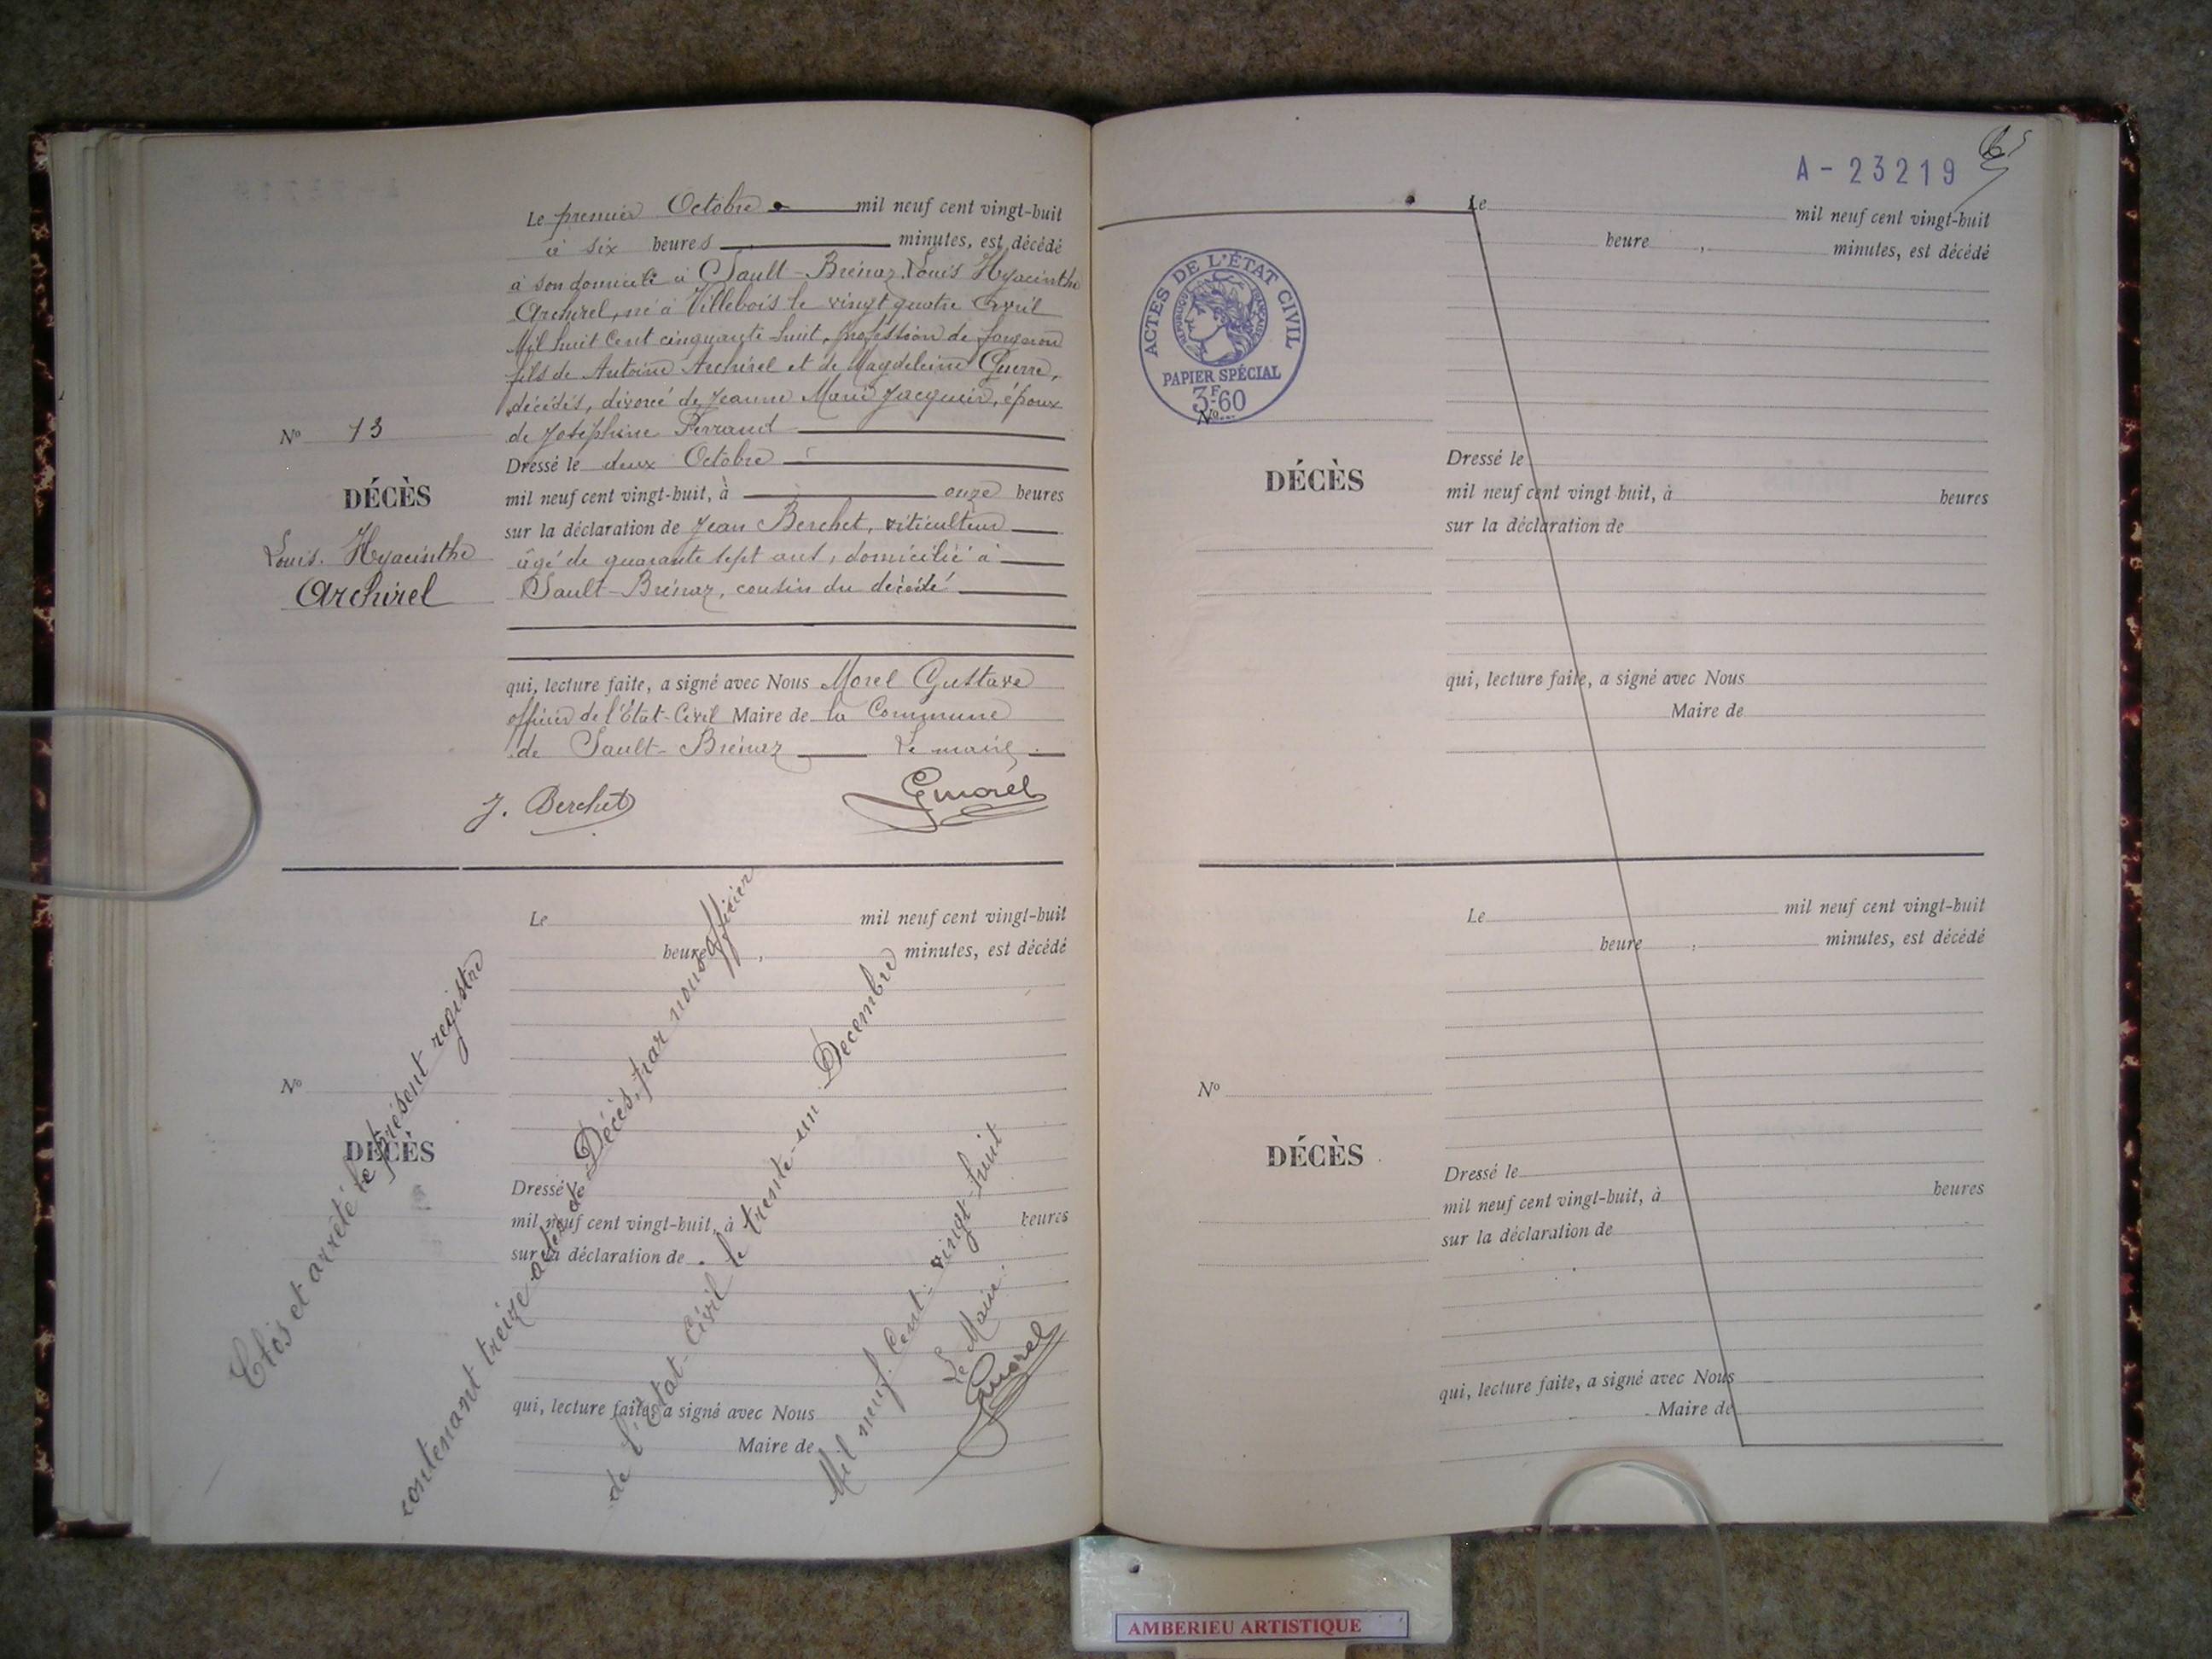 Le premier Octobre mil neuf cent vingt-huit
à six heures minutes, est décédé
à son domicile à Sault-Brénaz, Louis Hyacinthe
Archirel, né à Villebois le vingt quatre Avril
Mil huit Cent cinquante huit, profession de forgeron
fils de Antoine Archirel et de Magdeleine Guerre,
décédés, divorcé de Jeanne Marie Jacquier, époux
de Joséphine Ferrand
Nº 13
DÉCÈS
Louis. Hyacinthe
Archirel
Dressé le deux Octobre
mil neuf cent vingt-huit, à onze heures
sur la déclaration de Jean Berchet, viticulteur
âgé de quarante sept ans, domicilié à
Sault-Brénaz, cousin du décédé
qui, lecture faite, a signé avec Nous Morel Gustave
officier de l'Etat-Civil Maire de la Commune
de Sault-Brénaz Le maire
J. Berchet
GMorel
Le mil neuf cent vingt-huit
heure , minutes, est décédé
Nº
DÉCÈS
Dressé le
mil neuf cent vingt-huit, à heures
sur la déclaration de
qui, lecture faite, a signé avec Nous
Maire de
Clos et arrêté le présent registre
contenant treize actes de Décès, par nous officier
de l'Etat-Civil le trente-un Décembre
Mil neuf Cent vingt-huit
Le Maire.
GMorel
A-23219
Le mil neuf cent vingt-huit
heure , minutes, est décédé
ACTES DE L'ÉTAT CIVIL
RÉPUBLIQUE FRANÇAISE
PAPIER SPÉCIAL
3F.60
Nº
DÉCÈS
Dressé le
mil neuf cent vingt-huit, à heures
sur la déclaration de
qui, lecture faite, a signé avec Nous
Maire de
Le mil neuf cent vingt-huit
heure , minutes, est décédé
Nº
DÉCÈS
Dressé le
mil neuf cent vingt-huit, à heures
sur la déclaration de
qui, lecture faite, a signé avec Nous
Maire de
AMBERIEU ARTISTIQUE